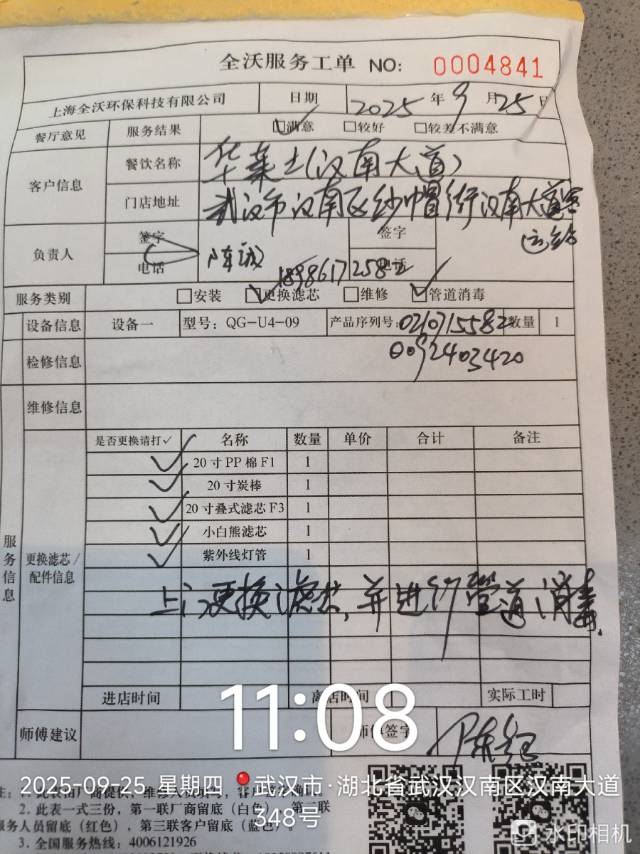 全沃服务工单 NO: 0004841
上海全沃环保科技有限公司 日期 2025年9月25日
餐厅意见 服务结果 ☑满意 □较好 □较差不满意
客户信息 餐饮名称 华莱士(汉南大道)
门店地址 武汉市汉南区纱帽街汉南大道客运站
负责人 签字 签字
电话 18986171258
服务类别 □安装 ☑更换滤芯 □维修 ☑管道消毒
设备信息 设备一 型号: QG-U4-09 产品序列号: 数量 1
0092403420
检修信息
维修信息
服务信息
更换滤芯/配件信息
是否更换请打✓ 名称 数量 单价 合计 备注
✓ 20寸PP棉F1 1
✓ 20寸炭棒 1
✓ 20寸叠式滤芯F3 1
✓ 小白熊滤芯 1
✓ 紫外线灯管 1
上门更换滤芯,并进行管道消毒.
进店时间 离店时间 实际工时
11:08
师傅建议 师傅签字
2025-09-25 星期四 武汉市·湖北省武汉汉南区汉南大道348号
2. 此表一式三份, 第一联厂商留底(白色), 第二联
服务人员留底(红色), 第三联客户留底(蓝色).
3. 全国服务热线: 4006121926
水印相机